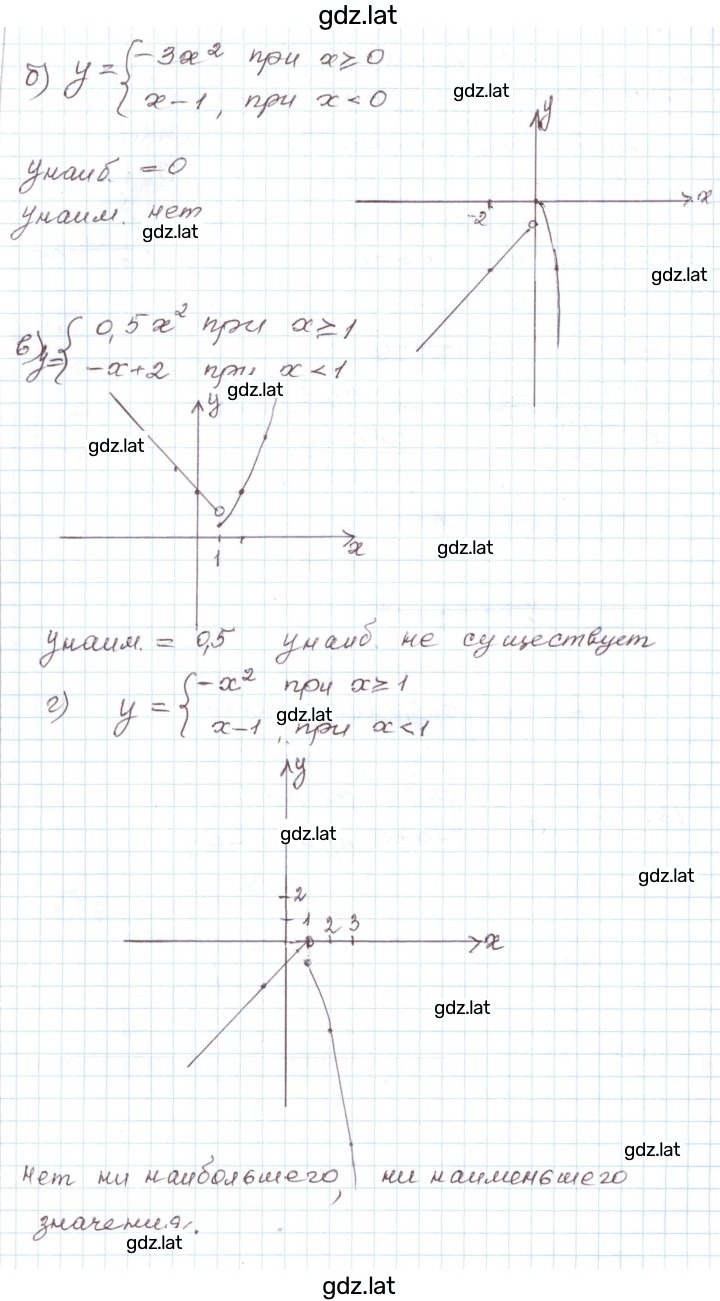 gdz.lat
б) y = { -3x² при x ≥ 0
x-1, при x < 0
gdz.lat
y
yнаиб. = 0
x
-2
yнаим. нет
gdz.lat
gdz.lat
в) y = { 0,5x² при x ≥ 1
-x+2 при x < 1
gdz.lat
y
gdz.lat
gdz.lat
x
1
yнаим. = 0,5 yнаиб. не существует
г) y = { -x² при x ≥ 1
gdz.lat
x-1, при x < 1
y
gdz.lat
gdz.lat
2
1 2 3
x
gdz.lat
gdz.lat
нет ни наибольшего, ни наименьшего
значения.
gdz.lat
gdz.lat